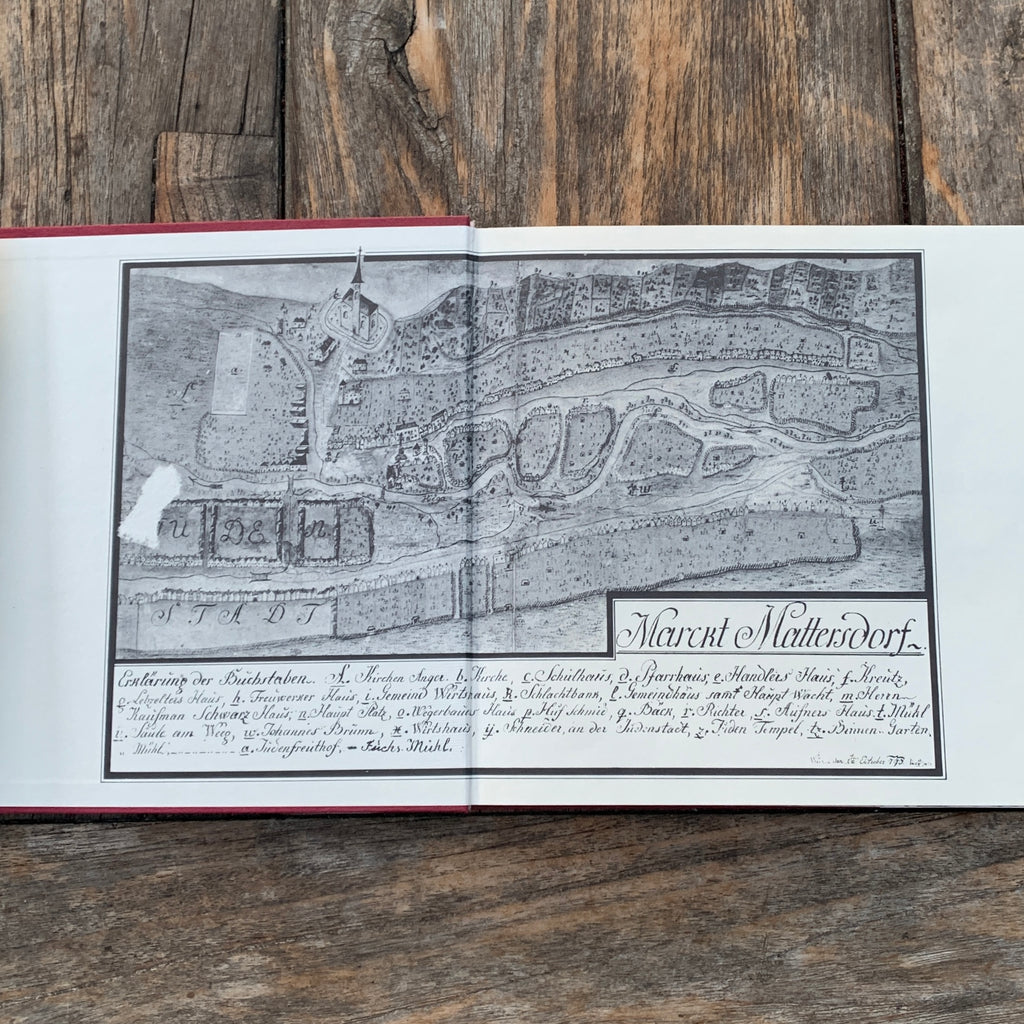 U DE N
STADT
Marckt Mattersdorf.
Erklärung der Buchstaben. A. Kirchen Anger. b. Kirche, c. Schulhaus, d. Pfarrhaus, e. Handlers Haus, f. Kreütz,
g. Lebzelters Haus, h. Haus, i. Gemeind Wirtshaus, k. Schlachtbank, l. Gemeindhaus samt Haupt Wacht, m. Herrn
Kaufman Schwarz Haus, n. Haupt Platz, o. Haus, p. Huf Schmid, q. Bäck, r. Richter, s. Haus, t. Mühl
v. Säule am Weeg, w. Johannes Brunn, x. Wirtshaus, y. Schneider, an der Judenstadt, z. Jüden Tempel, tz. Garten,
Mühl, a. Judenfreuthof, Fuchs Mühl.
October